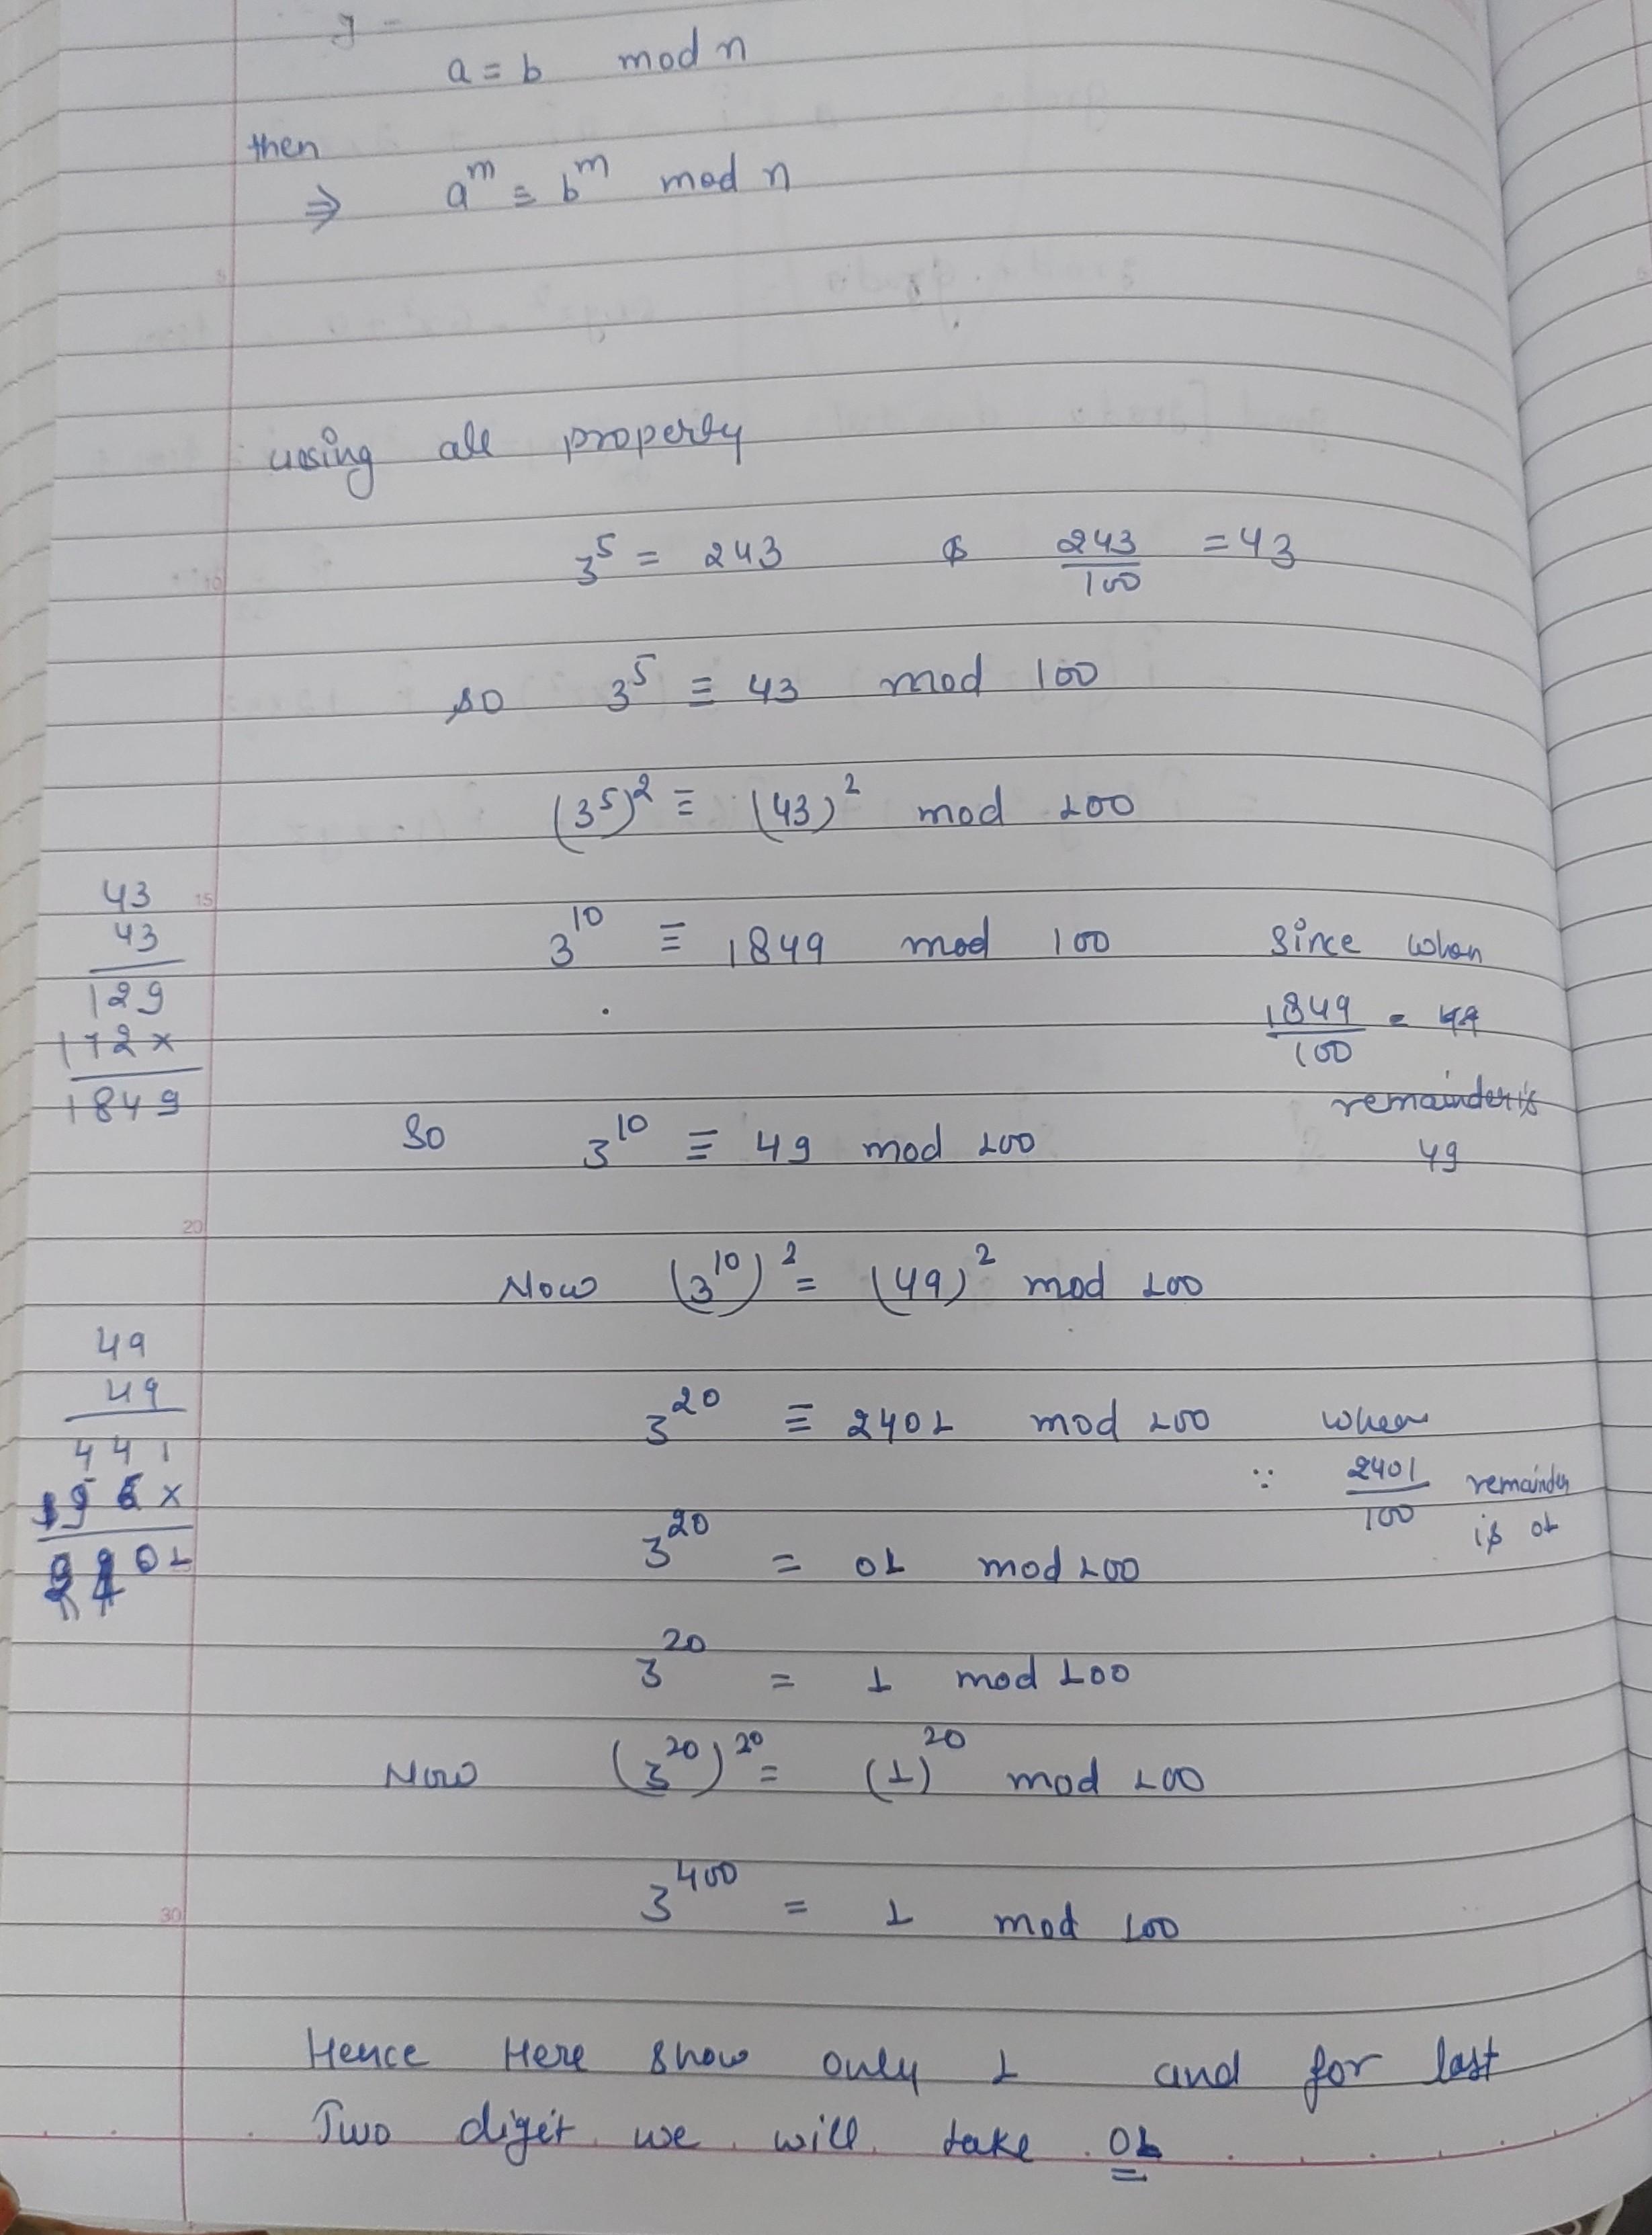 a = b mod n
then
⇒ a^m ≡ b^m mod n
using all property
3^5 = 243 & 243/100 = 43
so 3^5 ≡ 43 mod 100
(3^5)^2 ≡ (43)^2 mod 100
43
43
129
172x
1849
3^10 ≡ 1849 mod 100 since when
1849/100 = 49
remainder is
49
So 3^10 ≡ 49 mod 100
Now (3^10)^2 = (49)^2 mod 100
49
49
441
196x
2401
3^20 ≡ 2401 mod 100 when
∵ 2401/100 remainder
is 01
3^20 = 01 mod 100
3^20 = 1 mod 100
Now (3^20)^20 = (1)^20 mod 100
3^400 = 1 mod 100
Hence Here show only 1 and for last
Two digit we will take 01
5
10
15
20
30